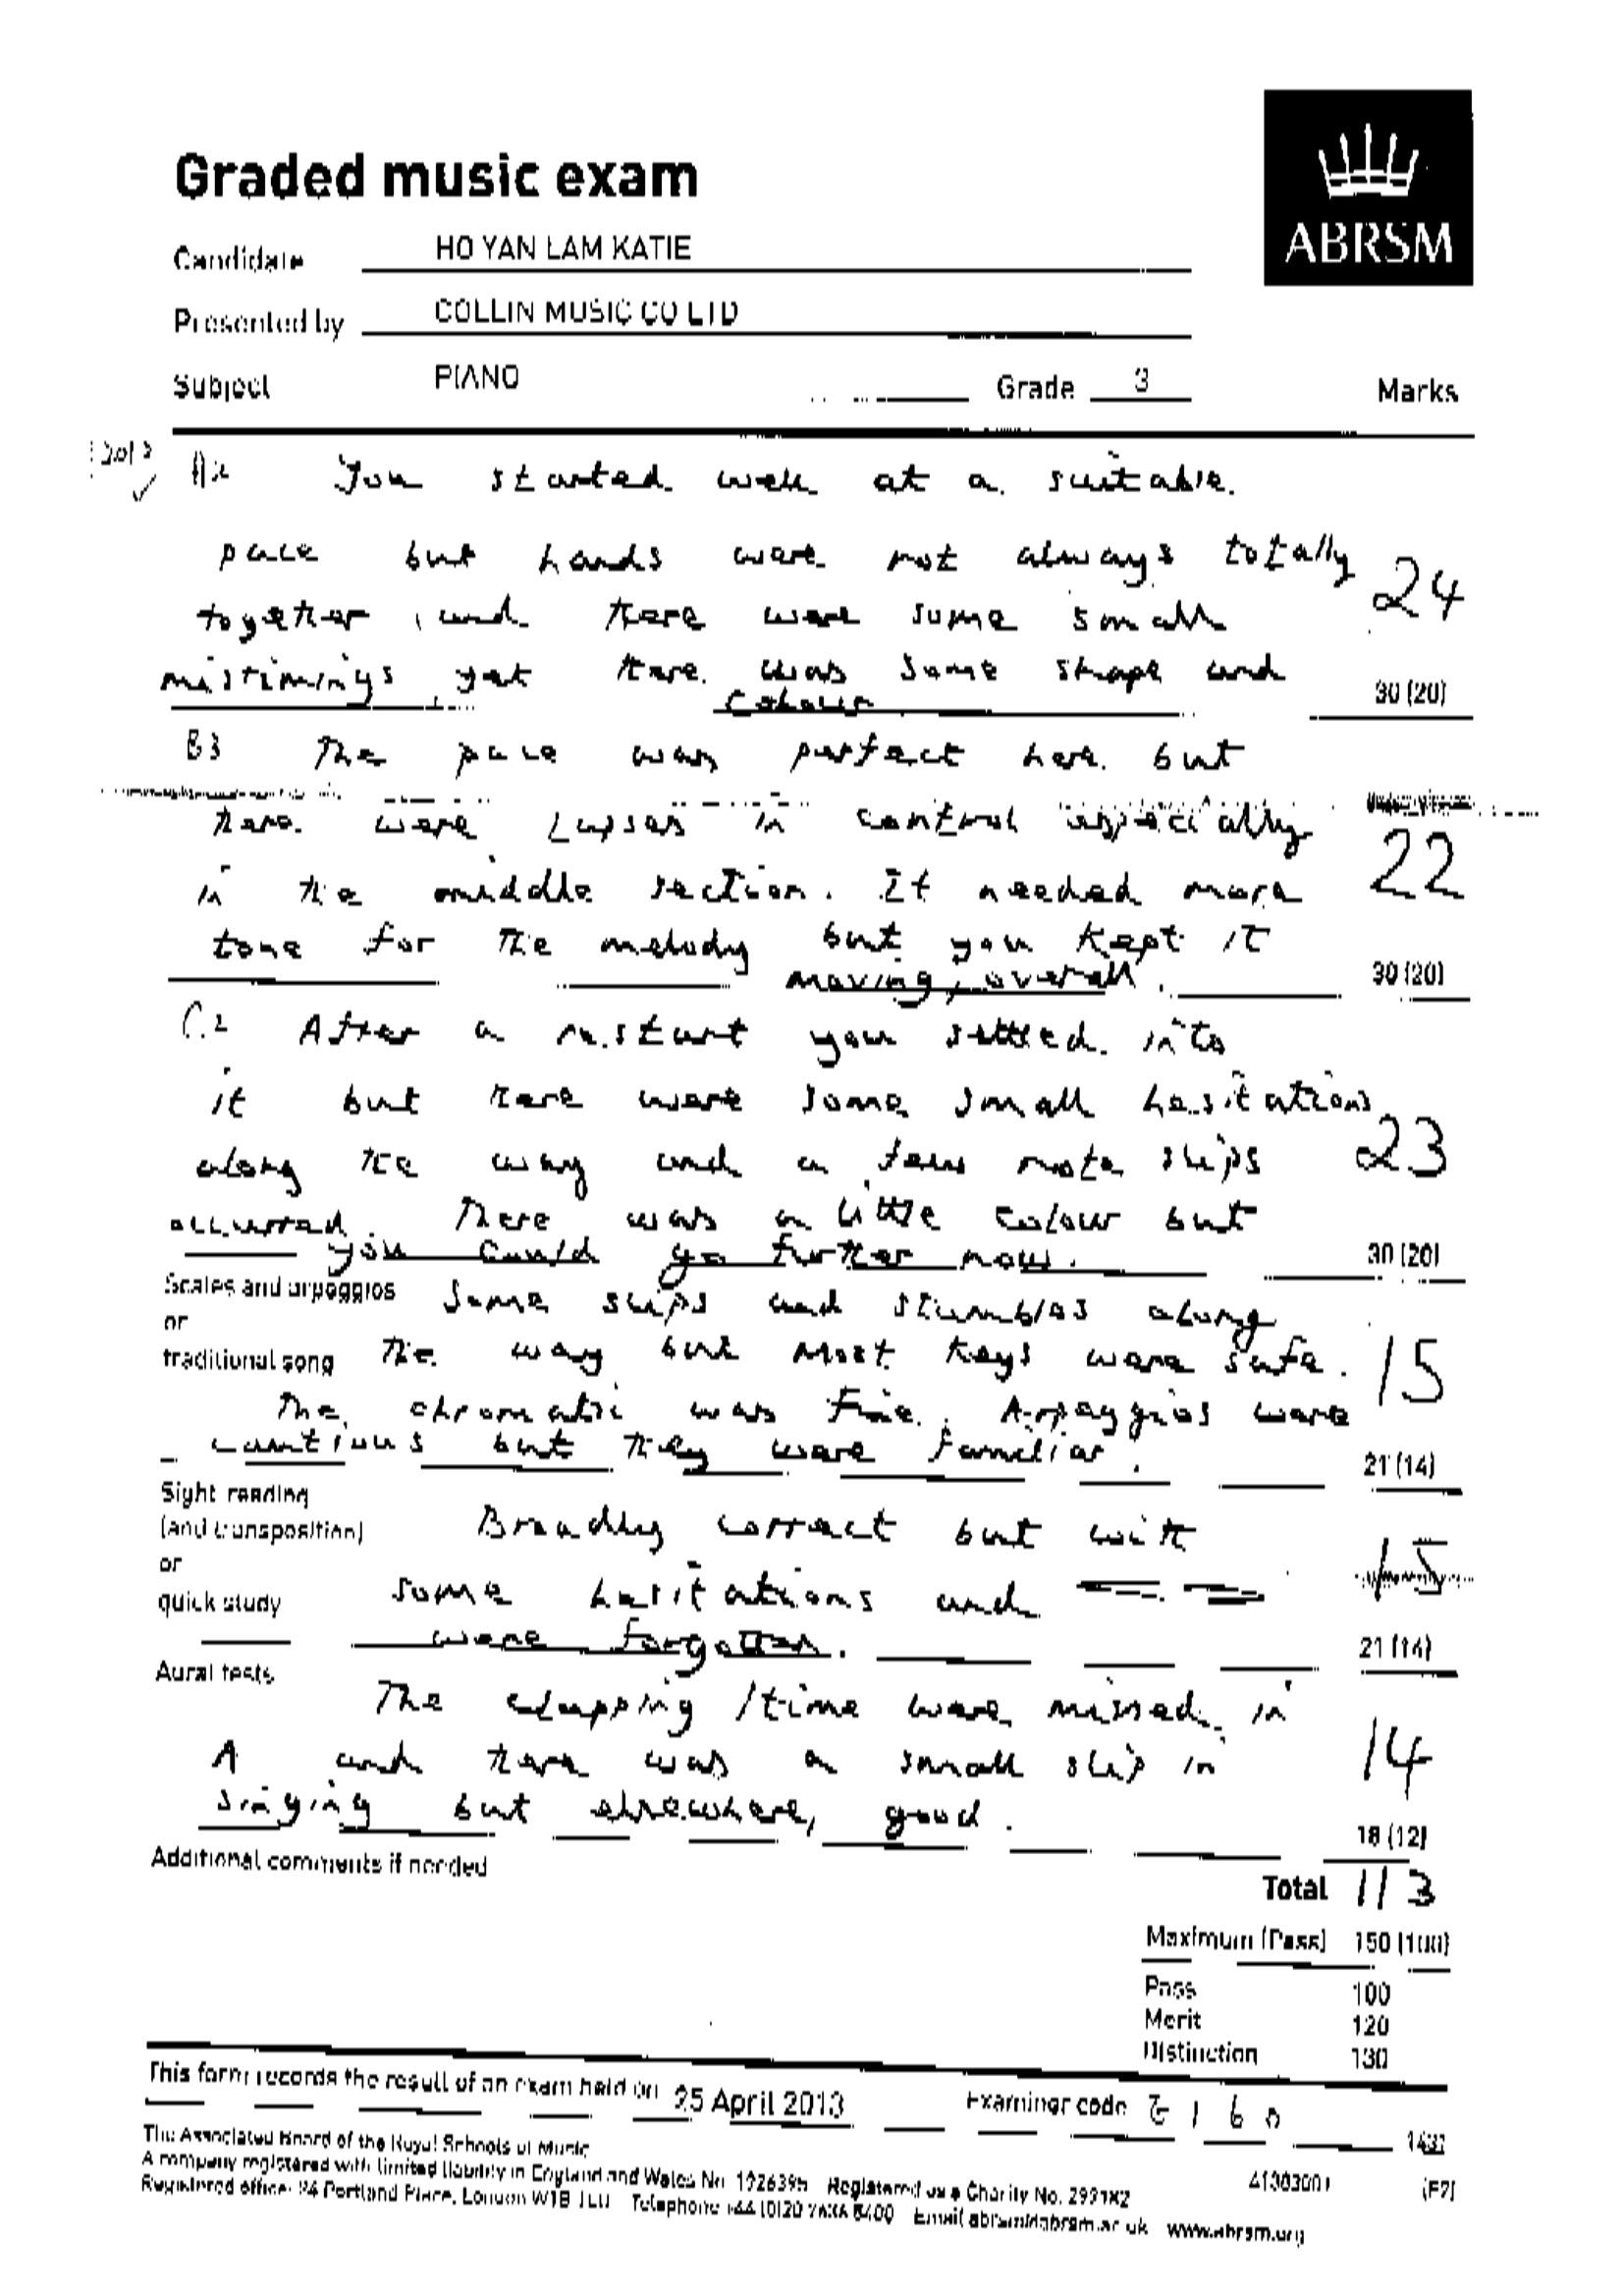 Graded music exam
ABRSM
Candidate HO YAN LAM KATIE
Presented by COLLIN MUSIC CO LTD
Subject PIANO Grade 3 Marks
A2 You started well at a suitable
pace but hands were not always totally
together, and there were some small 24
mistimings, yet there was some shape and
colour. 30 (20)
B3 The pace was perfect here but
there were lapses in control especially
in the middle section. It needed more 22
tone for the melody but you kept it
moving, overall. 30 (20)
C2 After a restart you settled into
it but there were some small hesitations
along the way and a few note slips 23
occurred. There was a little colour but
you could go further now. 30 (20)
Scales and arpeggios Some slips and stumbles along
or
traditional song the way but most keys were safe. 15
The chromatic was fine. Arpeggios were
cautious but they were familiar. 21 (14)
Sight-reading
(and transposition) Broadly correct but with
or 15
quick study some hesitations and
were forgotten. 21 (14)
Aural tests
The clapping/time were missed in
A and there was a small slip in 14
singing but elsewhere, good. 18 (12)
Additional comments if needed
Total 113
Maximum (Pass) 150 (100)
Pass 100
Merit 120
Distinction 130
This form records the result of an exam held on 25 April 2013 Examiner code
The Associated Board of the Royal Schools of Music
A company registered with limited liability in England and Wales No. 1926395 Registered as a Charity No. 299182
Registered office: 24 Portland Place, London W1B 1LU Telephone +44 (0)20 7636 5400 Email abrsm@abrsm.ac.uk www.abrsm.org